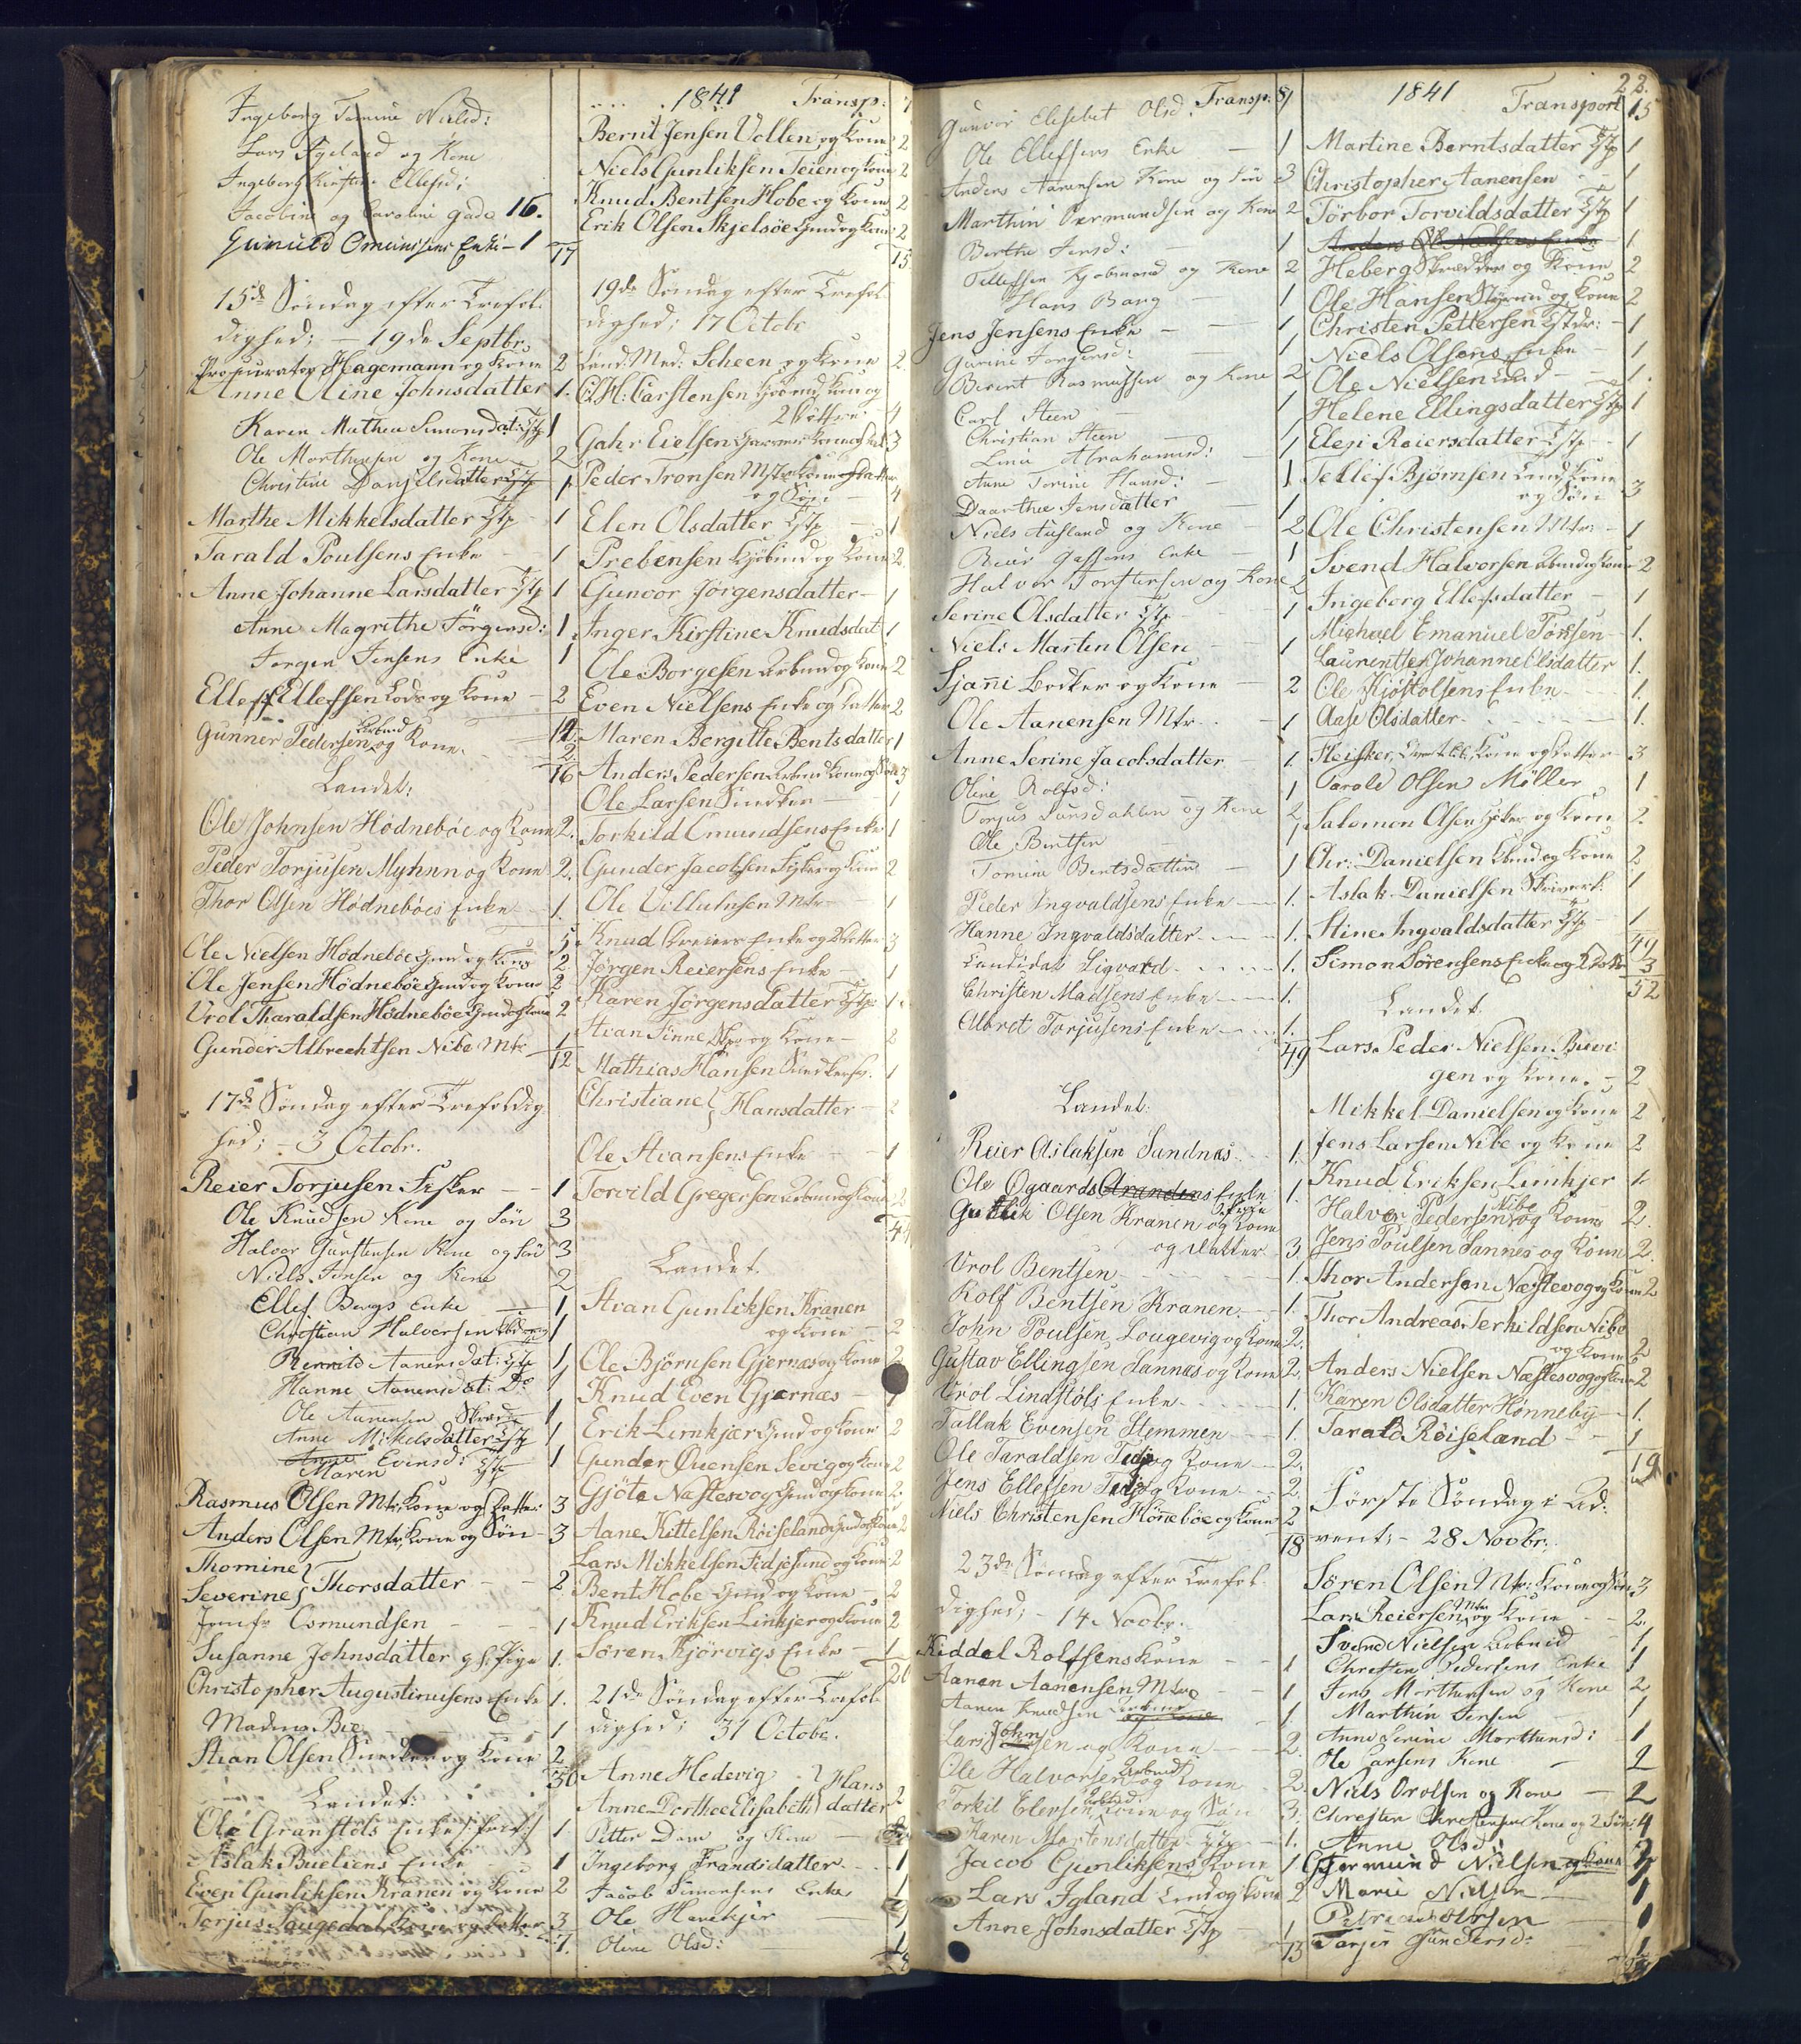 Ingeborg Tomine Nielsd:
Lars Igeland og Kone
Ingeborg Kirstine Ellefsd:
Jacobine og Caroline Gade 16.
Gunuld Omunsens Enke - 1
17
15de Søndag efter Trefol-
dighed; - 19de Septbr.
Procurator Hagemann og Kone 2
Anne Oline Johnsdatter 1.
Karen Mathea Simonsdat: Tjp 1
Ole Morthensen og Kone 2
Christine Danjelsdatter Tjp 1
Marthe Mikkelsdatter Tjp 1
Tarald Poulsens Enke 1
Anne Johanne Larsdatter Tjp 1
Anne Magrithe Jörgensd: 1
Jorgen Jensens Enke 1
Ellef Ellefsen Lods og Kone - 2
Gunner Pedersen Arbmd og Kone 2
16
Landet:
Ole Johnsen Hödneböe og Kone 2.
Peder Torjusen Myhren og Kone 2.
Thor Olsen Hödneböes Enke 1.
5
Ole Nielsen Hödneböe Gmd og Kone 2
Ole Jensen Hödneböe Gmd og Kone 2
Vrol Tharaldsen Hödneböe Gmd og Kone 2
Gunder Albrechtsen Nibe Mtr 1
12
17de Søndag efter Trefoldig-
hed; - 3 Octobr.
Reier Torjusen Fisker - - 1
Ole Knudsen Kone og Sön 3
Halvor Gunstensen Kone og Sön 3
Niels Jensen og Kone 2
Ellef Bergs Enke 1
Christian Halvorsen 1
Bernite Aanensdat: Tjp 1
Hanne Aanensdat: Do 1
Ole Aanensen Skræd 1
Anne Mikelsdatter Tjp 1
Anne Evensd: 1
Maren Tjp
Rasmus Olsen Mtr, Kone og Datter 3
Anders Olsen Mtr, Kone og Sön - 3
Thomine
Severine } Thorsdatter - - 2
Jomfr Osmundsen - - - 1
Susanne Johnsdatter g.h. Pige 1.
Christopher Augustinusens Enke 1.
Madm. Bie 1
Stian Olsen Snedker og Kone 2
36
Landet:
Ole Granstöls Enke 1
Aslak Bueliens Enke 1
Even Gunliksen Kranen og Kone 2
Torjus Laugedal, Kone og Datter 3
7.
1841 Transp: 7
Bernt Jensen Vollen og Kone 2
Niels Gunliksen Teien og Kone 2
Knud Bentsen Hobe og Kone 2
Erik Olsen Skjelsöe Gmd og Kone 2
15
19de Søndag efter Trefol-
dighed; 17 Octobr
Lend: Med: Scheen og Kone 2.
C. H. Carstensen Kjöbmd, Kone og
2 Döttre 4
Gahr Eielsen Garver Kone og Dat 3
Peder Tronsen Mtr Kone Datter
og Sön 4
Elen Olsdatter Tjp - 1
Prebensen Kjöbmd og Kone 2
Gunvor Jörgensdatter - 1
Inger Kirstine Knudsdat 1
Ole Borgesen Arbmd og Kone 2
Even Nielsens Enke og Datter 2
Maren Bergitte Bentsdatter 1
Anders Pedersen Arbmd Kone og Sön 3
Ole Larsen Snedker - - 1
Torkild Omundsens Enke 1
Gunder Jacobsen Fisker og Kone 2
Ole Villumsen Mtr - 1
Knud Dreiers Enke og 2 Döttre 3
Jørgen Reiersens Enke - 1
Karen Jørgensdatter Tjp: 1.
Stian Finne Skpr og Kone - 2
Mathias Hansen Snedkersv. 1
Christiane } Hansdatter - 2
Ole Stiansens Enke - - 1
Torvild Gregersen Arbmd og Kone 2
44
Landet.
Stian Gunliksen Kranen
og Kone - 2
Ole Björnsen Gjernæs og Kone 2
Knud Even Gjernæs - 1
Erik Limkjær Gmd og Kone 2
Gunder Ovensen Sevig og Kone 2
Gjöte Næstesvog Gmd og Kone 2
Aane Kittelsen Röiseland Gmd og Kone 2
Lars Mikkelsen Fidjesund og Kone 2
Bent Hobe Gmd og Kone - 2
Knud Eriksen Linkjer og Kone 2
Sören Kjörvigs Enke - 1
20
21de Søndag efter Trefol-
dighed; 31 Octobr.
Anne Hedevig } Hans
Anne Dorthea Elisabeth } datter 2
Petter Dam og Kone
Ingeborg Frandsdatter - - 1
Jacob Simonsens Enke 1
Ole Hanekjer 1
Oline Olsd: 1
Gunvor Elisebet Olsd. Transp: 8 1
Ole Ellefsens Enke - 1
Anders Aanensen Kone og Sön 3
Marthin Oormundsen og Kone 2
Berthe Jensd: 1
Tellefsen Kjobmand og Kone 2
Hans Bang - 1
Jens Jensens Enke - - 1
Gurine Jorgensd: 1
Berent Rasmussen og Kone 2
Carl Steen - 1
Christian Steen - 1
Line Abrahamsd: - 1
Anne Torine Hansd: - 1
Daarthe Jensdatter - 1
Niels Aasland og Kone - 2
Reier Gassens Enke - 1
Halvor Torstensen og Kone 2
Serine Olsdatter Tjp - - 1
Niels Martin Olsen - - 1
Sjanni Bödker og Kone - 2
Ole Aanensen Mtr. - 1
Anne Serine Jacobsdatter - 1.
Oline Rolfsd: 1
Torjus Sunsdahlen og Kone 2
Ole Bentsen 1
Tomine Bentsdatter 1
Peder Ingvaldsens Enke - 1.
Hanne Ingvaldsdatter - - - 1.
Candidat Sigvard - - - 1.
Christen Madsens Enke - - 1.
Albret Torjusens Enke - - - 1.
49
Landet:
Reier Aslaksen Sundnæs - 1.
Ole Øgaards Enke 1.
Gunlik Olsen Kranen og Kone
og Datter 3.
Vrol Bentsen - - - 1.
Rolf Bentsen Kranen - 1.
John Poulsen Lougevig og Kone 2.
Gustav Ellingsen Sannæs og Kone 2.
Vrol Lindstöls Enke - - - 1.
Tallak Evensen Stemmen - - 1.
Ole Taraldsen Teie og Kone - 2.
Jens Ellefsen Teie og Kone - 2.
Niels Christensen Hönneböe og Kone 2
18
23de Søndag efter Trefol-
dighed; - 14 Novbr.
Kiddel Rolfsens Kone - - 1
Aanen Aanensen Mtr - - 1
Aanen Knudsen 1
Lars Johnsen og Kone - - 2.
Ole Halvorsen Arbmd og Kone 2.
Torkil Elevsen Arbmd Kone og Sön 3.
Karen Mortensdatter Tjp - 1.
Jacob Gunliksens Kone 1
Lars Igland Lmd og Kone 2
Anne Johnsdatter Tjp 1
13
22.
1841 Transport 15
Martine Berntsdatter Tjp 1
Christopher Aanensen - - 1
Törbor Torvildsdatter Tjp 1
Anders Ol Nielsens Enke - 1
Heberg Skrædder og Kone 2
Ole Hansen Styrmd og Kone 2
Christen Pettersen - 1
Niels Olsens Enke - 1
Ole Nielsen - 1.
Helene Ellingsdatter Tjp 1
Elesi Reiersdatter Tjp - - 1
Tellef Björnsen Kone
og Sön 3
Ole Christensen Mtr: - 1
Svend Halvorsen Arbmd og Kone 2
Ingeborg Ellefsdatter - 1
Michael Emanuel Torssen - 1.
Laurentte Johanne Olsdatter 1.
Ole Kjöstolsens Enke - - 1.
Aase Olsdatter - - - - 1.
Heisker, Kone og Datter 3
Tarald Olsen Möller 1
Salomon Olsen Höker og Kone 2.
Chr: Danielsen Arbmd og Kone 2
Aslak Danielsen 1
Stine Ingvaldsdatter Tjp - 1
49
Simon Sörensens Enke og 2 Döttr 3
52
Landet.
Lars Peder Nielsen Buvi-
gen og Kone. - 2
Mikkel Danielsen og Kone 2
Jens Larsen Nibe og Kone 2
Knud Eriksen Limkjer 1.
Halvor Pedersen Nibe og Kone 2.
Jens Poulsen Sannes og Kone 2.
Thor Andersen Næstesvog og Kone 2
Thor Andreas Terkildsen Nibe
og Kone 2
Anders Nielsen Næstesvog og Kone 2
Karen Olsdatter Hönneby - 1.
Tarald Röiseland - 1
19
Förste Søndag i Ad-
vent; - 28 Novbr.
Sören Olsen Mtr: Kone og Sön 3
Lars Reiersen Mtr og Kone - - 2.
Svend Nielsen Arbmd - 1
Christen Pedersens Enke 1
Jens Morthensen og Kone 2
Marthin Jensen 1
Anne Serine Morthensd: 1
Ole Larsens Kone - 1
Niels Orolsen og Kone - 2
Christen Christensen Kone og 2 Sön: 4
Anne Olsd:
Gjermund Nielsen og Kone
Marie Nielsen - 1
Petrea Olsen - 1
Torjer Gundersd: 1